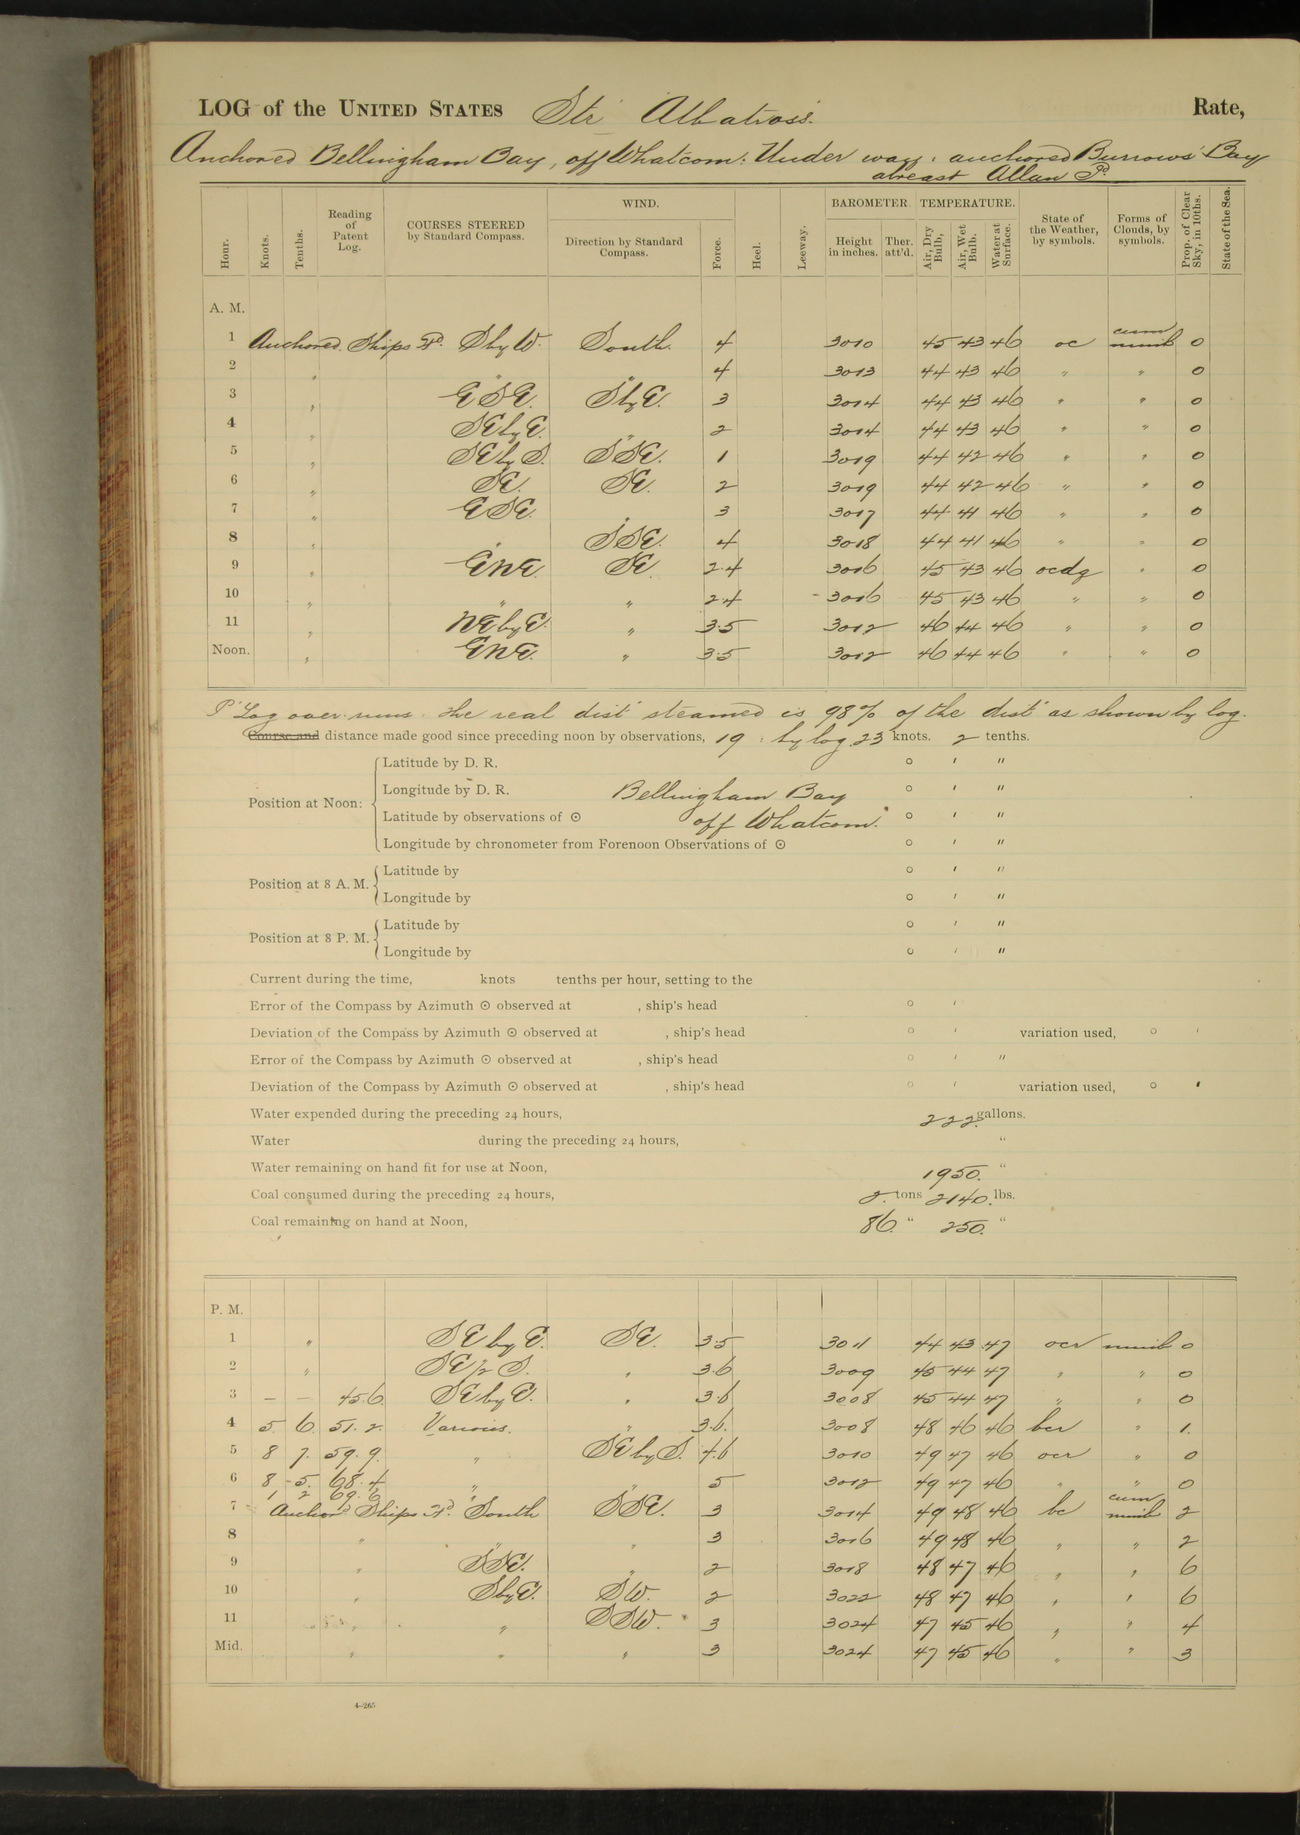 LOG of the UNITED STATES Str Albatross. Rate,
Anchored Bellingham Bay, off Whatcom. Under way. anchored Burrows Bay
abreast Allan Id.
Hour. Knots. Tenths. Reading of Patent Log. COURSES STEERED by Standard Compass. WIND. Direction by Standard Compass. Force. Heel. Leeway. BAROMETER Height in inches. Ther. att'd. TEMPERATURE. Air, Dry Bulb, Air, Wet Bulb. Water at Surface. State of the Weather, by symbols. Forms of Clouds, by symbols. Prop. of Clear Sky, in 10ths. State of the Sea.
A. M.
1 Anchored. Ships Hd. S by W. South. 4 3010 45 43 46 oc cum nimb 0
2 " " 4 3013 44 43 46 " " 0
3 " ESE. S by E. 3 3014 44 43 46 " " 0
4 " SE by E. " 2 3014 44 43 46 " " 0
5 " SE by S. SSE. 1 3019 44 42 46 " " 0
6 " SE. SE. 2 3019 44 42 46 " " 0
7 " ESE. " 3 3017 44 41 46 " " 0
8 " " SSE. 4 3018 44 41 46 " " 0
9 " ENE. SE. 2.4 3016 45 43 46 ocdq " 0
10 " " " 2.4 3016 45 43 46 " " 0
11 " NE by E. " 3.5 3012 46 44 46 " " 0
Noon. " ENE. " 3.5 3012 46 44 46 " " 0
P. Log over-runs. the real dist steamed is 98% of the dist as shown by log.
Course and distance made good since preceding noon by observations, 19 : by log 23 knots. 2 tenths.
Latitude by D. R. ° ' "
Longitude by D. R. Bellingham Bay ° ' "
Position at Noon:
Latitude by observations of ⊙ off Whatcom. ° ' "
Longitude by chronometer from Forenoon Observations of ⊙ ° ' "
Position at 8 A. M. Latitude by ° ' "
Longitude by ° ' "
Position at 8 P. M. Latitude by ° ' "
Longitude by ° ' "
Current during the time, knots tenths per hour, setting to the
Error of the Compass by Azimuth ⊙ observed at , ship's head ° '
Deviation of the Compass by Azimuth ⊙ observed at , ship's head ° ' variation used, ° '
Error of the Compass by Azimuth ⊙ observed at , ship's head ° ' "
Deviation of the Compass by Azimuth ⊙ observed at , ship's head ° ' variation used, ° '
Water expended during the preceding 24 hours, 222. gallons.
Water during the preceding 24 hours, "
Water remaining on hand fit for use at Noon, 1950. "
Coal consumed during the preceding 24 hours, 2. tons 2140. lbs.
Coal remaining on hand at Noon, 86. " 250. "
P. M.
1 " SE by E. SE. 3.5 3011 44 43 47 ocr nimb 0
2 " SE ½ S. " 3.6 3009 45 44 47 " " 0
3 — — 45.6 SE by E. " 3.6 3008 45 44 47 " " 0
4 5 6 51.2. Various. " 3.6. 3008 48 46 46 bcr " 1.
5 8 7. 59.9. " SE by S. 4.6 3010 49 47 46 ocr " 0
6 8 5. 68.4. " " 5 3012 49 47 46 " " 0
1 2 69.6
7 Anchor'd Ships Hd. South SSE. 3 3014 49 48 46 bc cum nimb 2
8 " " " 3 3016 49 48 46 " " 2
9 " SSE. " 2 3018 48 47 46 " " 6
10 " S by E. SW. 2 3022 48 47 46 " " 6
11 " " SSW. 3 3024 47 45 46 " " 4
Mid. " " " 3 3024 47 45 46 " " 3
4—265